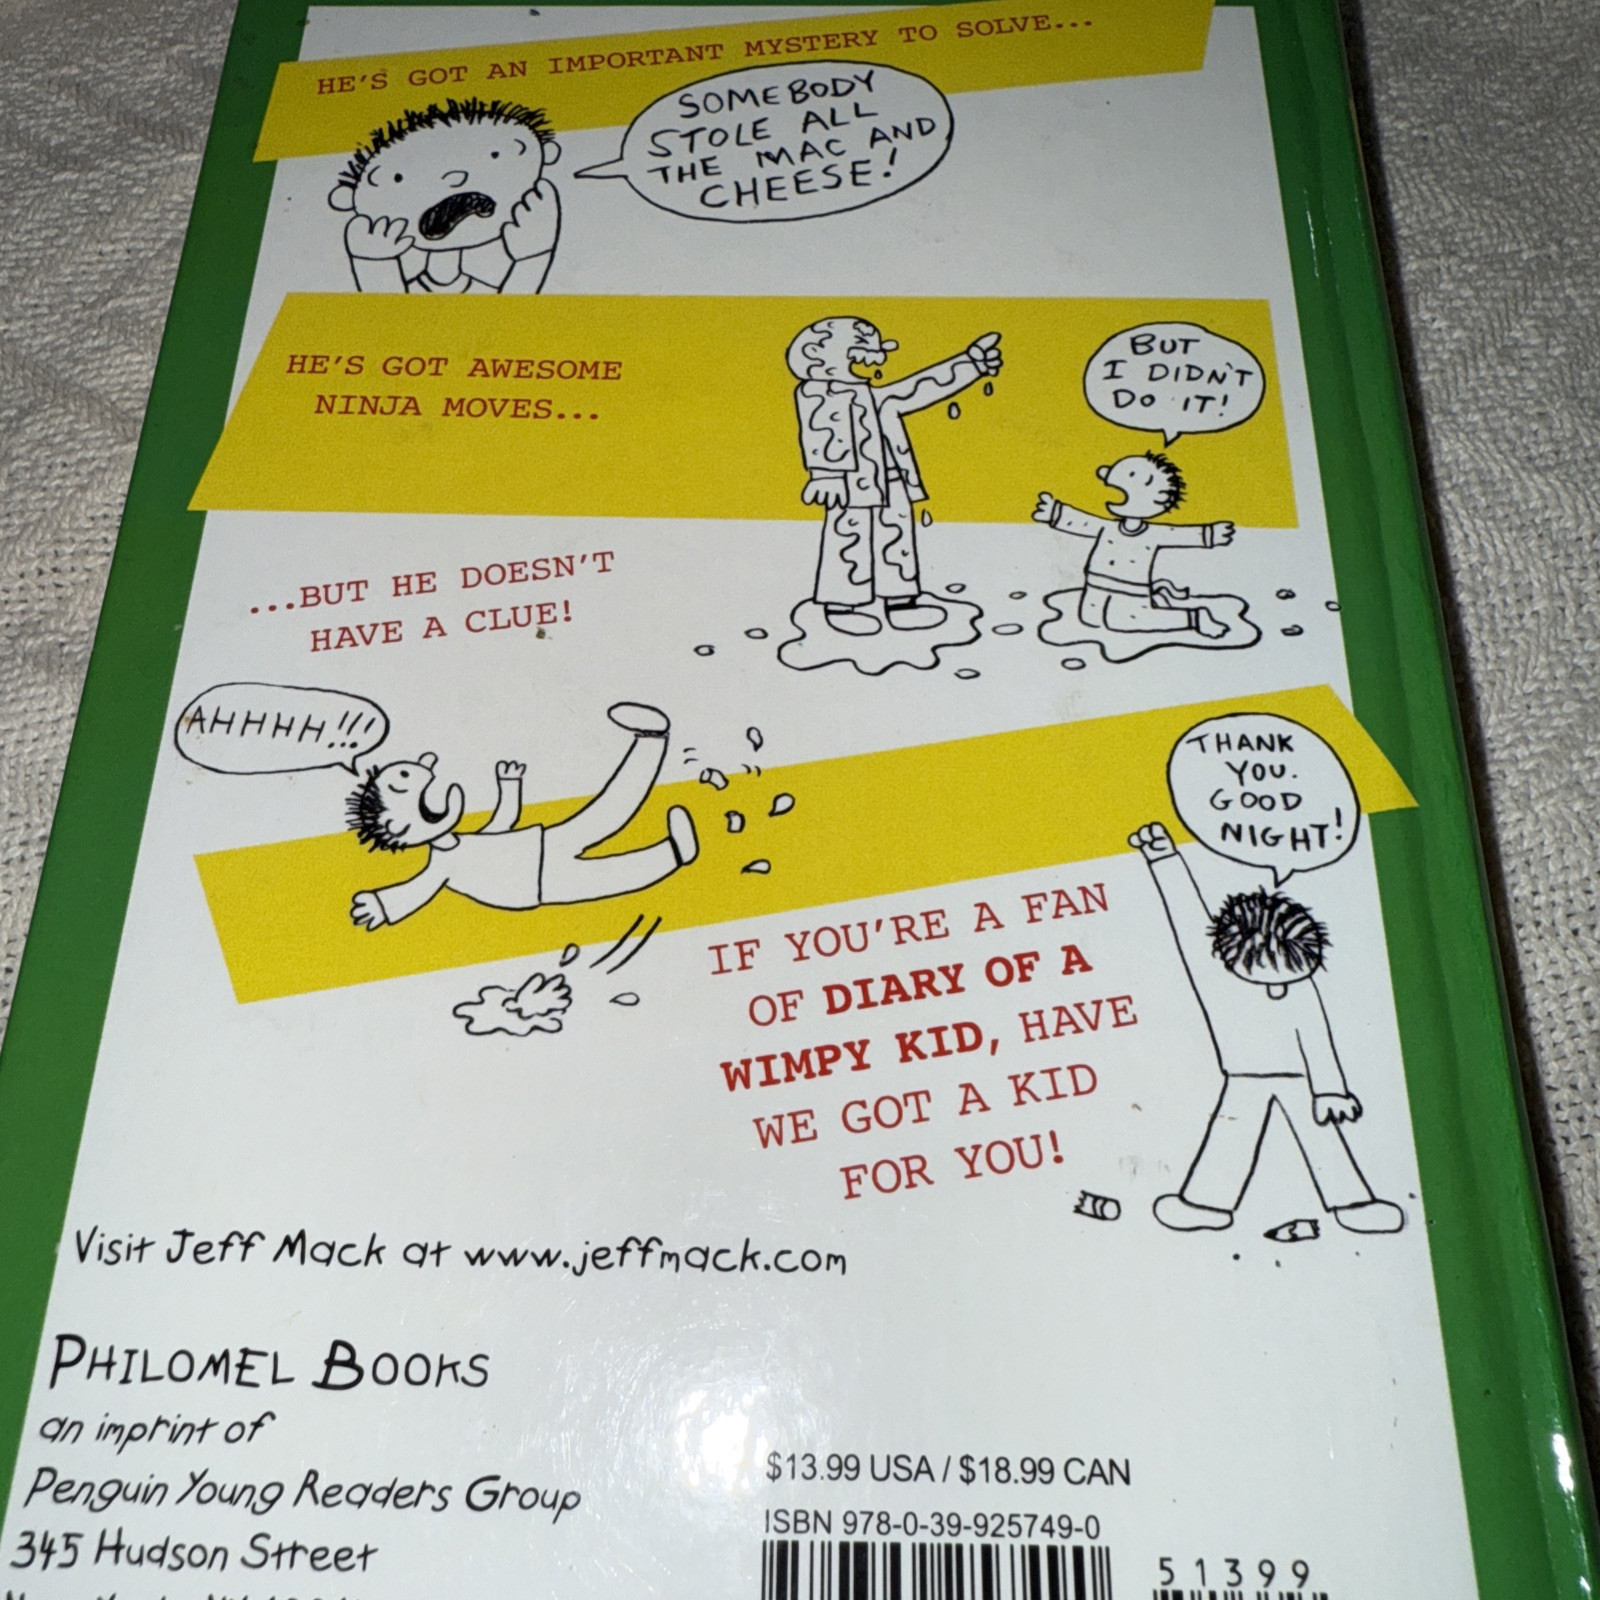 HE'S GOT AN IMPORTANT MYSTERY TO SOLVE...
SOMEBODY
STOLE ALL
THE MAC AND
CHEESE!
HE'S GOT AWESOME
NINJA MOVES...
BUT
I DIDN'T
DO IT!
...BUT HE DOESN'T
HAVE A CLUE!
AHHHH!!!
THANK
YOU.
GOOD
NIGHT!
IF YOU'RE A FAN
OF DIARY OF A
WIMPY KID, HAVE
WE GOT A KID
FOR YOU!
Visit Jeff Mack at www.jeffmack.com
PHILOMEL BOOKS
an imprint of
Penguin Young Readers Group
345 Hudson Street
$13.99 USA / $18.99 CAN
ISBN 978-0-39-925749-0
51399